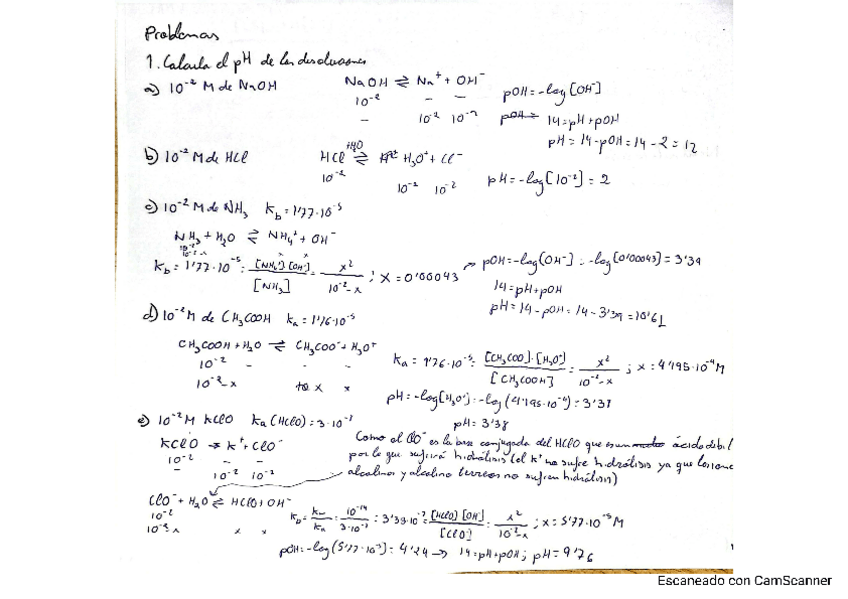 Problemas
1. Calcula el pH de las disoluciones
a) 10⁻² M de NaOH NaOH ⇌ Na⁺ + OH⁻ pOH = -log [OH⁻]
10⁻² - -
- 10⁻² 10⁻² pOH = 14 = pH + pOH
pH = 14 - pOH = 14 - 2 = 12
b) 10⁻² M de HCl HCl +H₂O ⇌ H₃O⁺ + Cl⁻
10⁻² 10⁻² 10⁻² pH = -log [10⁻²] = 2
c) 10⁻² M de NH₃ Kb = 1'77·10⁻⁵
NH₃ + H₂O ⇌ NH₄⁺ + OH⁻
10⁻²-x x x
Kb = 1'77·10⁻⁵ = [NH₄⁺] [OH⁻] / [NH₃] = x² / 10⁻²-x ; x = 0'00043 → pOH = -log (OH⁻) = -log [0'00043] = 3'39
14 = pH + pOH
pH = 14 - pOH = 14 - 3'39 = 10'61
d) 10⁻² M de CH₃COOH Ka = 1'76·10⁻⁵
CH₃COOH + H₂O ⇌ CH₃COO⁻ + H₃O⁺
10⁻² - -
10⁻²-x x x
Ka = 1'76·10⁻⁵ = [CH₃COO⁻]·[H₃O⁺] / [CH₃COOH] = x² / 10⁻²-x ; x = 4'195·10⁻⁴ M
pH = -log [H₃O⁺] = -log (4'195·10⁻⁴) = 3'38
pH = 3'38
e) 10⁻² M KClO Ka (HClO) = 3·10⁻⁸
KClO → K⁺ + ClO⁻
10⁻² - -
- 10⁻² 10⁻²
Como el ClO⁻ es la base conjugada del HClO que es un ácido débil
por lo que sufrirá hidrólisis (el K⁺ no sufre hidrólisis ya que los iones
alcalinos y alcalino térreos no sufren hidrólisis)
ClO⁻ + H₂O ⇌ HClO + OH⁻
10⁻²
10⁻²-x x x
Kb = Kw / Ka = 10⁻¹⁴ / 3·10⁻⁸ = 3'33·10⁻⁷ = [HClO] [OH⁻] / [ClO⁻] = x² / 10⁻²-x ; x = 5'77·10⁻⁵ M
pOH = -log (5'77·10⁻⁵) = 4'24 → 14 = pH + pOH ; pH = 9'76
Escaneado con CamScanner